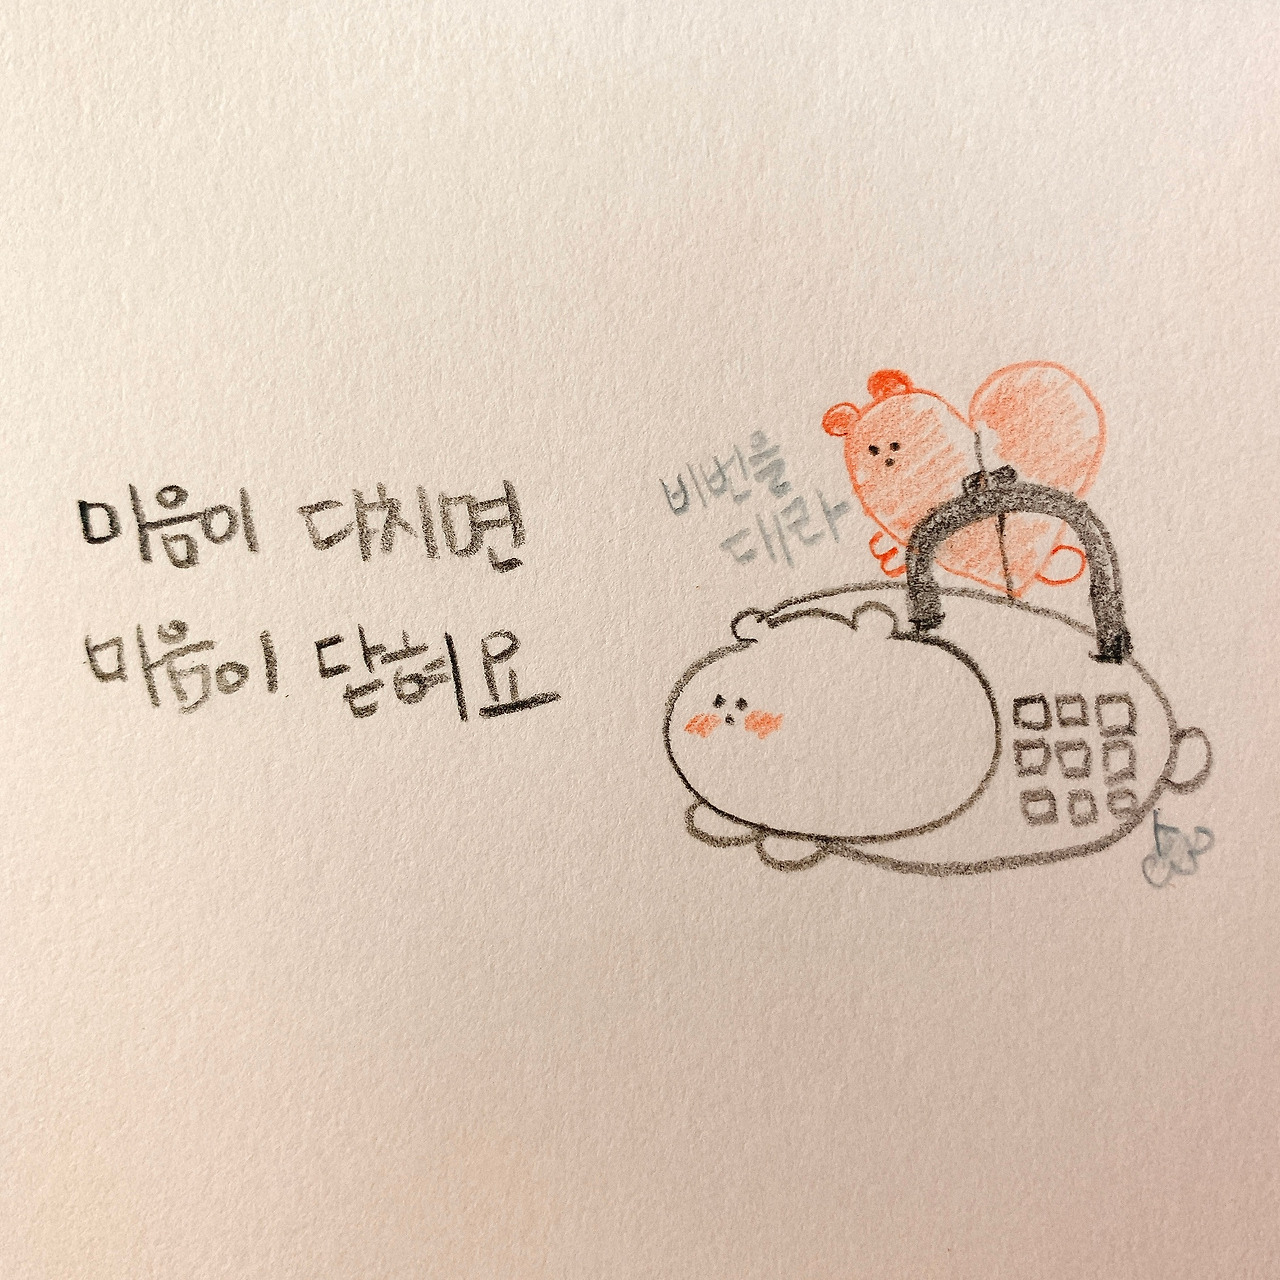 마음이 다치면
마음이 닫혀요
비번을
대라